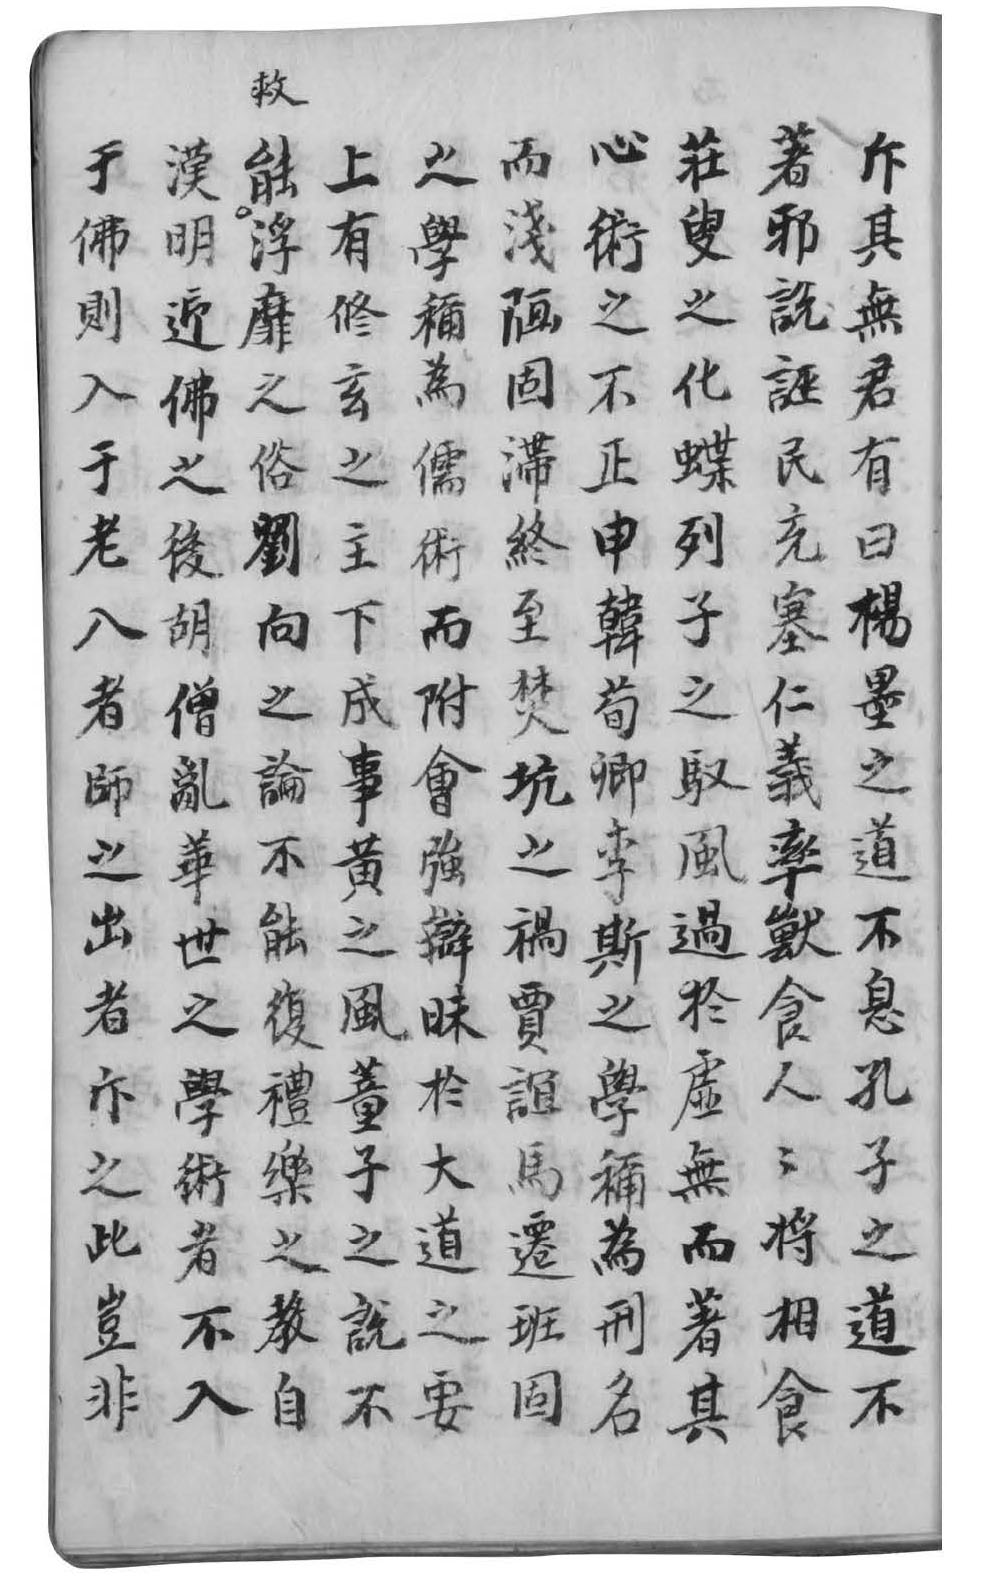 斥其無君有曰楊墨之道不息孔子之道不
著邪說誣民充塞仁義率獸食人〻將相食
莊叟之化蝶列子之馭風過於虛無而著其
心術之不正申韓荀卿李斯之學稱為刑名
而淺陋固滯終至焚坑之禍賈誼馬遷班固
之學稱為儒術而附會強辯昧於大道之要
上有修玄之主下成事黃之風董子之說不
救
能。浮靡之俗劉向之論不能復禮樂之教自
漢明近佛之後胡僧亂華世之學術者不入
于佛則入于老入者師之出者斥之此豈非